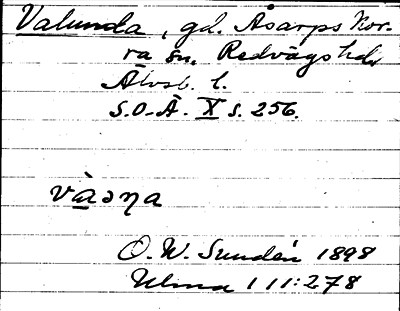 Valunda, gd. Åsarps Nor-
ra sn. Redvägs hd.
Älvsb. l.
S.O.Ä. X s. 256.
vàəɳa
O. W. Sundén 1898
Ulma 111:278